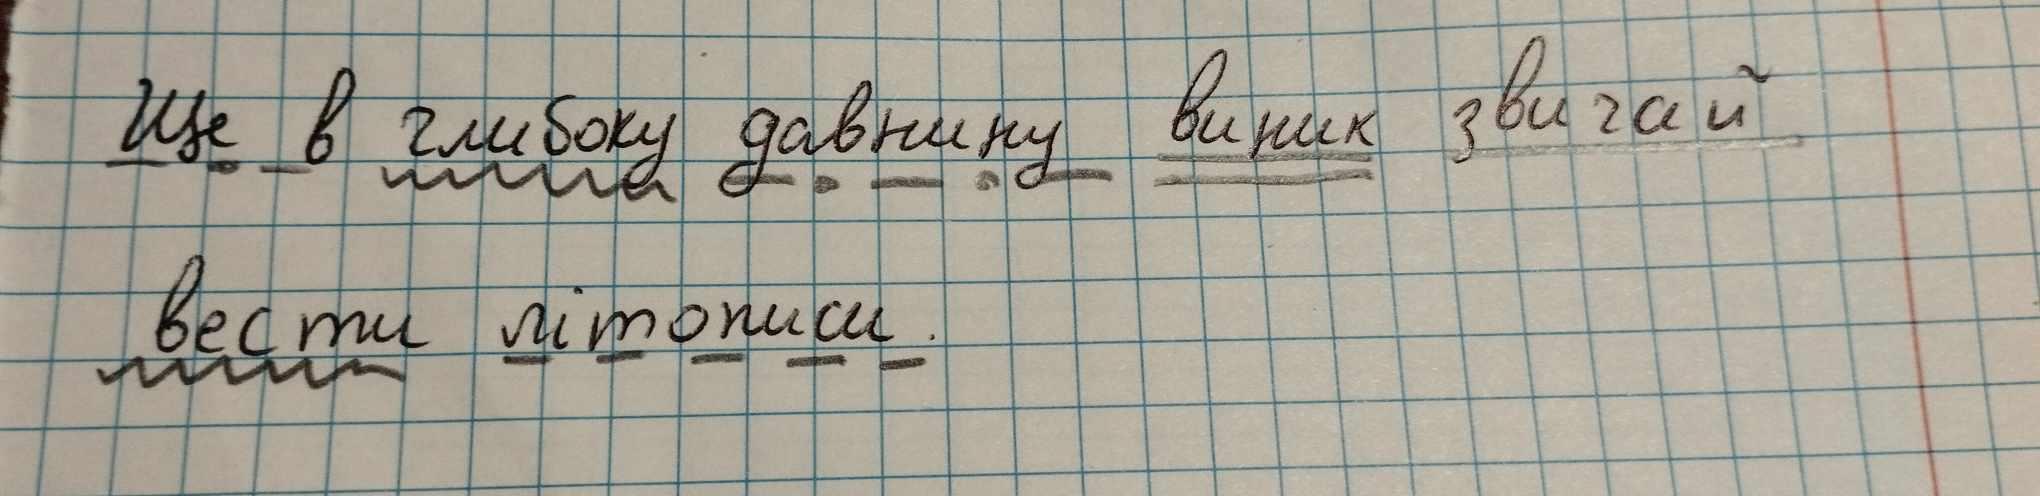 Ще в глибоку давнину виник звичай
вести літописи.